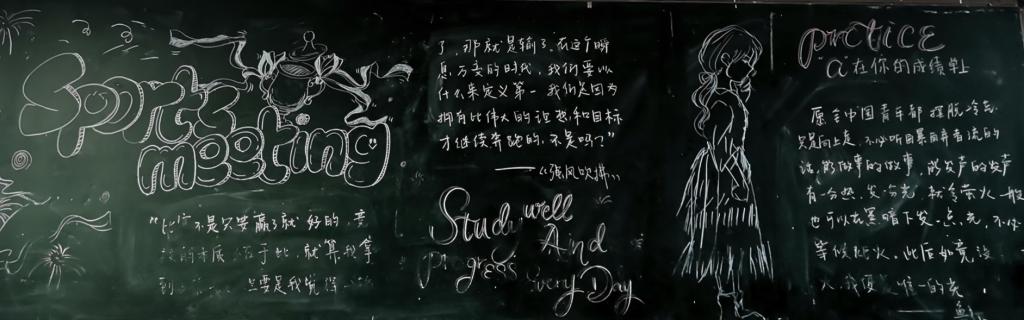 Sports
meeting
"比 不是只要赢了就好的,竞
技的本质 在于此,就算我拿
到 只要是我觉得
了,那就是输了,在这个瞬
息万变的时代,我们要以
什么来定义第一 我们是因为
拥有比伟大的 想和目标
才继续奔跑的,不是吗?"
——《强风吹拂》
Study well
And
progress
Every Day
practice
"a"在你的成绩单上
愿 中国青年都摆脱冷气
只是向上走,不必听自暴自弃者流的
话,能做事的做事,能发声的发声
有一分热,发一分光 就令萤火一般
也可以在黑暗下发一点光,不必
等候炬火,此后如竟没
火,我便是唯一的光